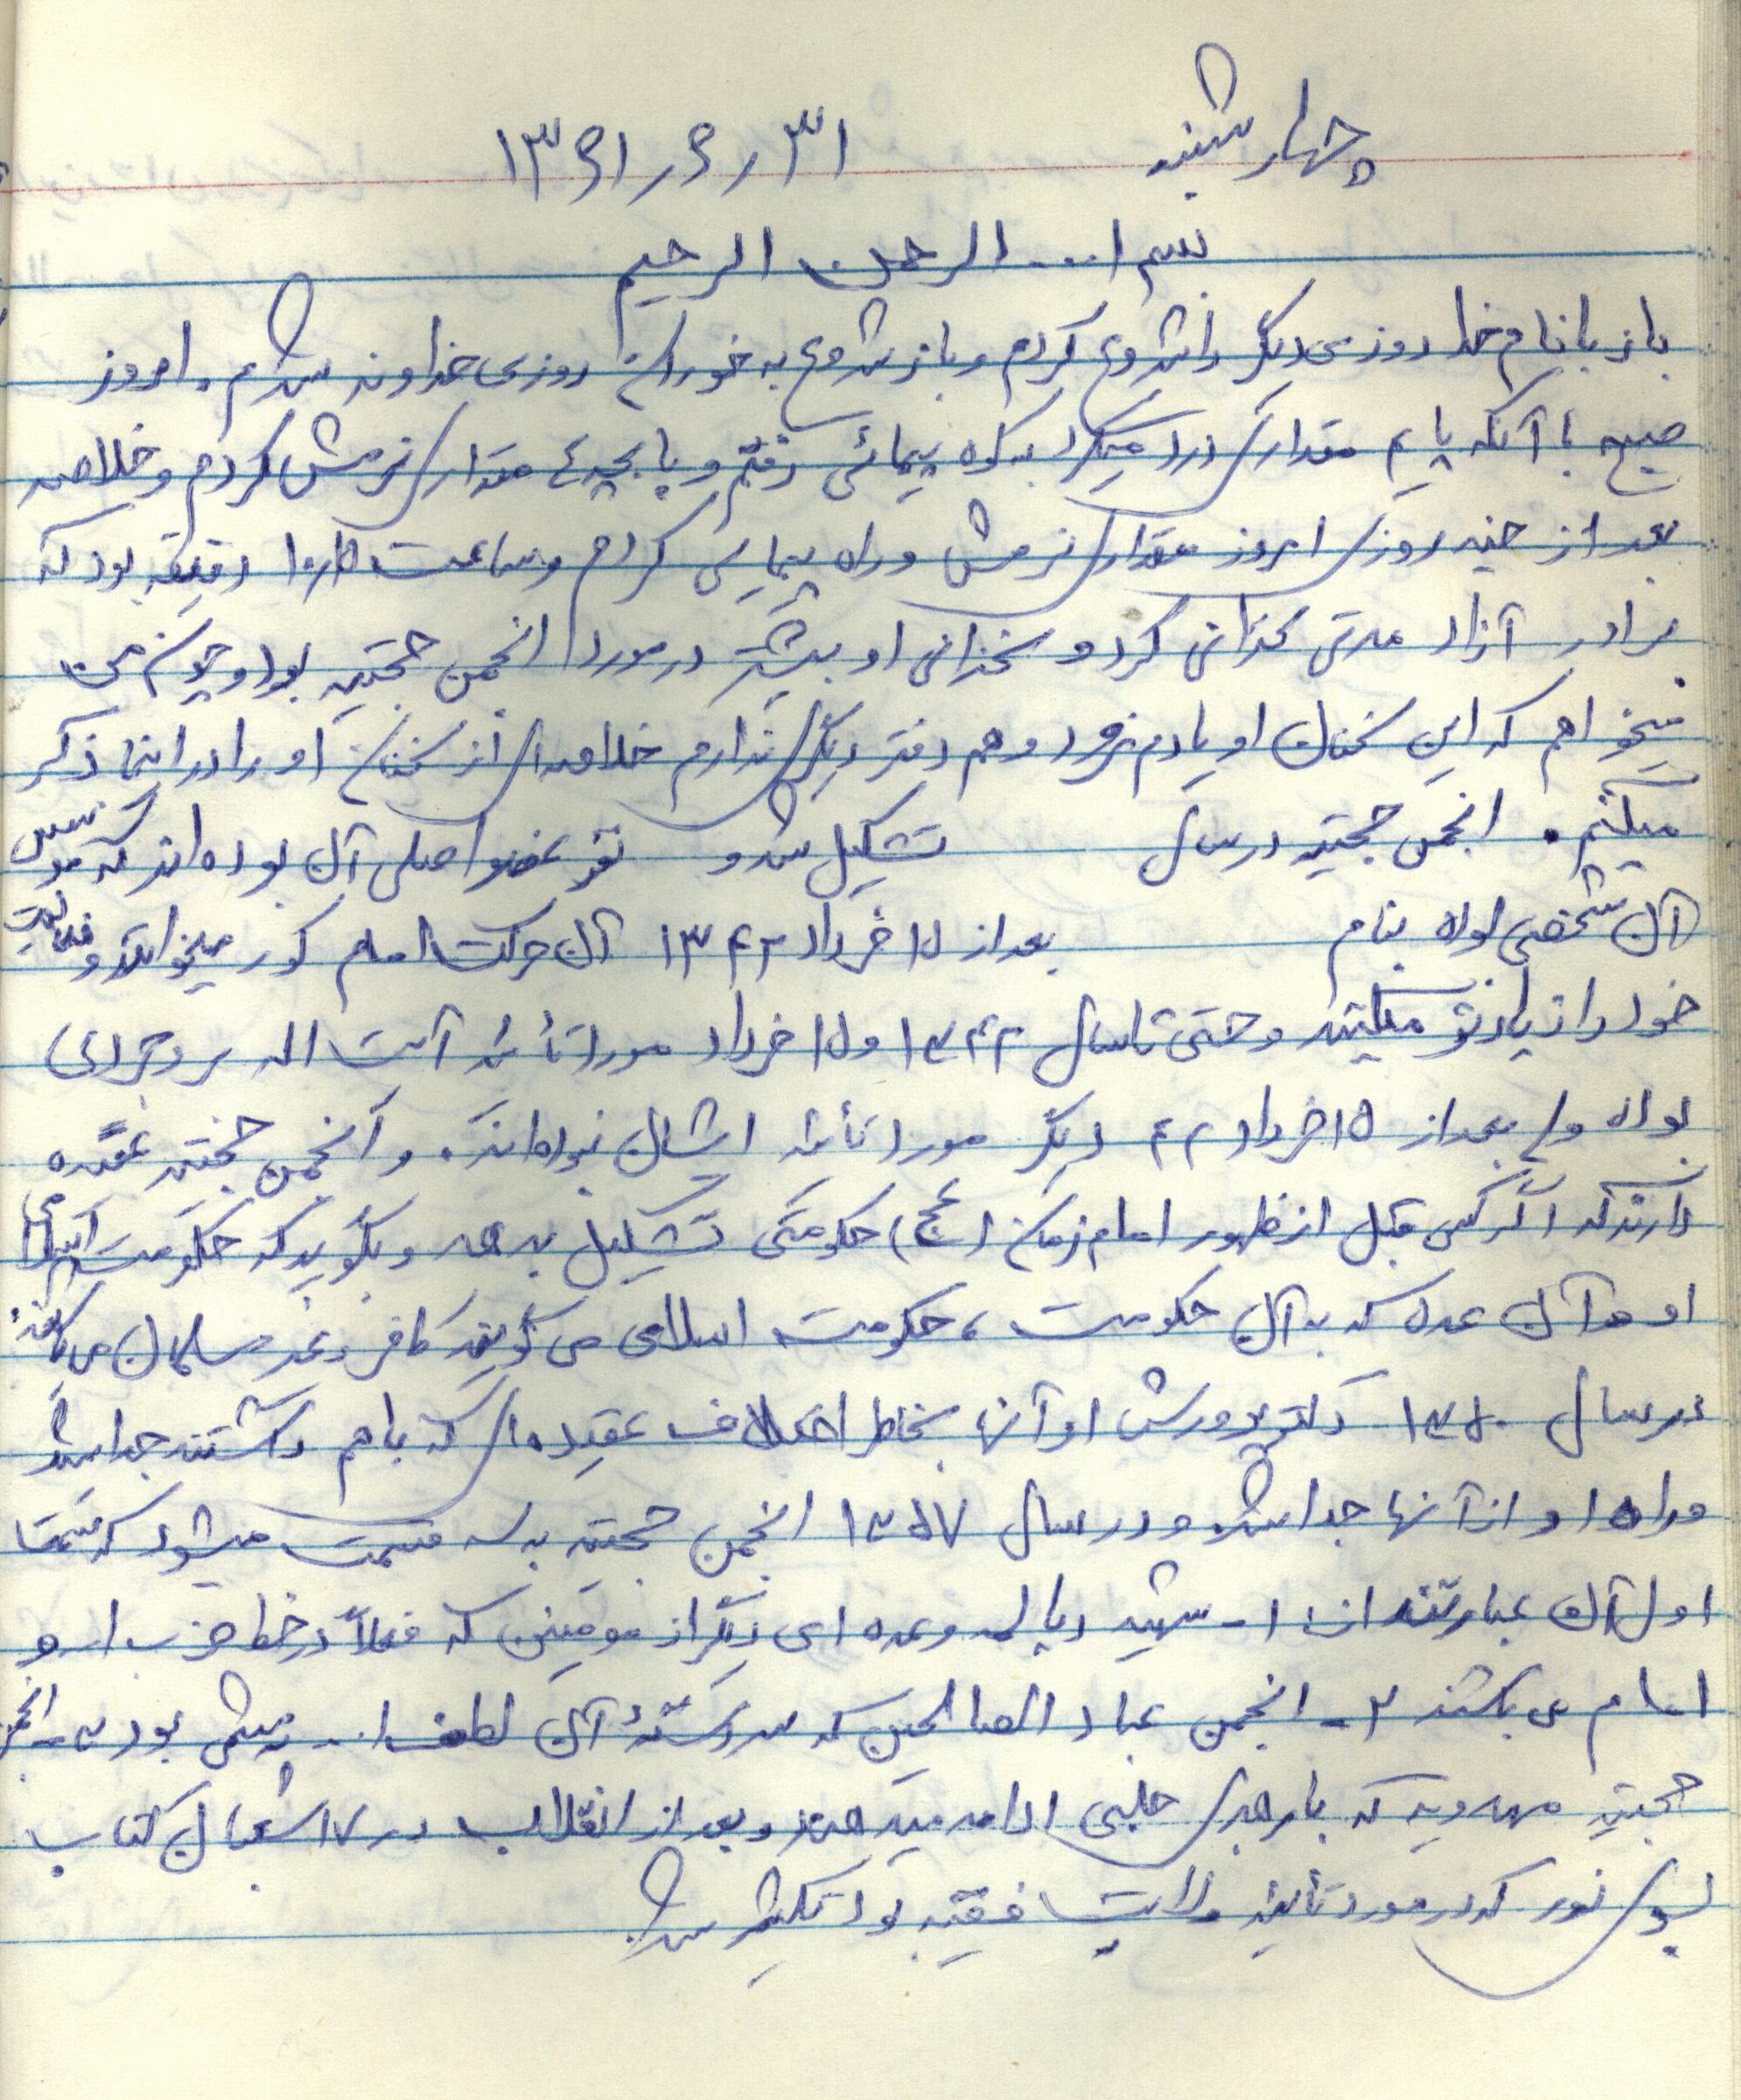 چهارشنبه ۱۳۶۱/۶/۳۱
بسم ا... الرحمن الرحیم
باز با نام خدا روزی دیگر را شروع کردم و باز شروع به خوردن روزی خداوند شدم. امروز
صبح با آنکه پایم مقداری درد میکرد به کوه پیمائی رفتم و با بچه‌ها مقداری نرمش کردم و خلاصه
بعد از چند روزی امروز مقداری نرمش و راه پیمایی کردم و ساعت دقیقه بود که
برادر آزاد مدتی سخنرانی کرد و سخنرانی او بیشتر در مورد انجمن حجتیه بود و چون من
میخواهم که این سخنان او یادم نرود و هم دفتر دیگری ندارم خلاصه‌ای از سخنان او را در اینجا ذکر
میکنم. انجمن حجتیه در سال تشکیل شد و نفر عضو اصلی آن بوده‌اند که موسس
آن شخصی بوده بنام بعد از ۱۵ خرداد ۱۳۴۲ آن حرکت امام کور میخواند و فعالیت
خود را زیادتر میکند و حتی تا سال ۱۳۴۲ و ۱۵ خرداد مورد تأئید آیت اله بروجردی
بوده ولی بعد از ۱۵ خرداد ۴۲ دیگر مورد تأئید ایشان نبوده‌اند. و انجمن حجتیه عقیده
دارند که اگر کسی قبل از ظهور امام زمان (عج) حکومتی تشکیل بدهد و بگوید که حکومت اسلامی
او و آن عده که به آن حکومت، حکومت اسلامی می‌گویند کافر و غیر مسلمان می‌باشند.
در سال ۱۳۵۰ دکتر پرورش او آنها بخاطر اختلاف عقیده‌ای که با هم داشتند جدا شد
و راه او از آنها جدا شد و در سال ۱۳۵۷ انجمن حجتیه به سه قسمت میشود که قسمت
اول آن عبارتند از: ۱- شهید دیالمه و عده‌ای دیگر از مومنین که فعلاً در خط حزب ا... و
امام می‌باشند ۲- انجمن عباد الصالحین که سردسته آن لطف ا... میثمی بود ۳- انجمن
حجتیه مهدویه که با رهبری حلبی ادامه میدهند و بعد از انقلاب در ۱۷ شعبان کتاب
بسوی نور که در مورد تأئید ولایت فقیه بود تکثیر شد.